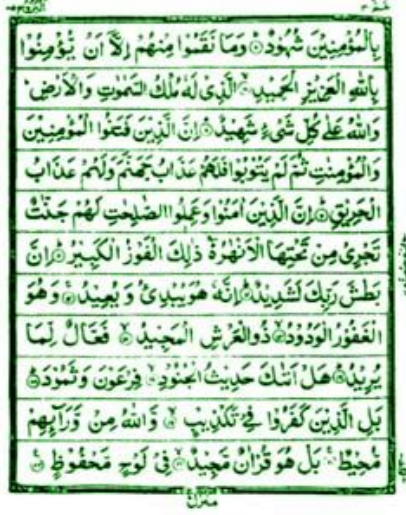 بِالْمُؤْمِنِيْنَ شُهُوْدٌ ۞ وَمَا نَقَمُوْا مِنْهُمْ اِلَّاۤ اَنْ يُّؤْمِنُوْا
بِاللّٰهِ الْعَزِيْزِ الْحَمِيْدِ ۞ الَّذِىْ لَهٗ مُلْكُ السَّمٰوٰتِ وَالْاَرْضِ ؕ
وَاللّٰهُ عَلٰى كُلِّ شَىْءٍ شَهِيْدٌ ۞ اِنَّ الَّذِيْنَ فَتَنُوا الْمُؤْمِنِيْنَ
وَالْمُؤْمِنٰتِ ثُمَّ لَمْ يَتُوْبُوْا فَلَهُمْ عَذَابُ جَهَنَّمَ وَلَهُمْ عَذَابُ
الْحَرِيْقِ ۞ اِنَّ الَّذِيْنَ اٰمَنُوْا وَعَمِلُوا الصّٰلِحٰتِ لَهُمْ جَنّٰتٌ
تَجْرِىْ مِنْ تَحْتِهَا الْاَنْهٰرُ ؕ ذٰلِكَ الْفَوْزُ الْكَبِيْرُ ۞ اِنَّ
بَطْشَ رَبِّكَ لَشَدِيْدٌ ۞ اِنَّهٗ هُوَ يُبْدِئُ وَ يُعِيْدُ ۞ وَهُوَ
الْغَفُوْرُ الْوَدُوْدُ ۞ ذُو الْعَرْشِ الْمَجِيْدُ ۞ فَعَّالٌ لِّمَا
يُرِيْدُ ۞ هَلْ اَتٰىكَ حَدِيْثُ الْجُنُوْدِ ۞ فِرْعَوْنَ وَثَمُوْدَ ۞
بَلِ الَّذِيْنَ كَفَرُوْا فِىْ تَكْذِيْبٍ ۞ وَّاللّٰهُ مِنْ وَّرَآئِهِمْ
مُّحِيْطٌ ۞ بَلْ هُوَ قُرْاٰنٌ مَّجِيْدٌ ۞ فِىْ لَوْحٍ مَّحْفُوْظٍ ۞